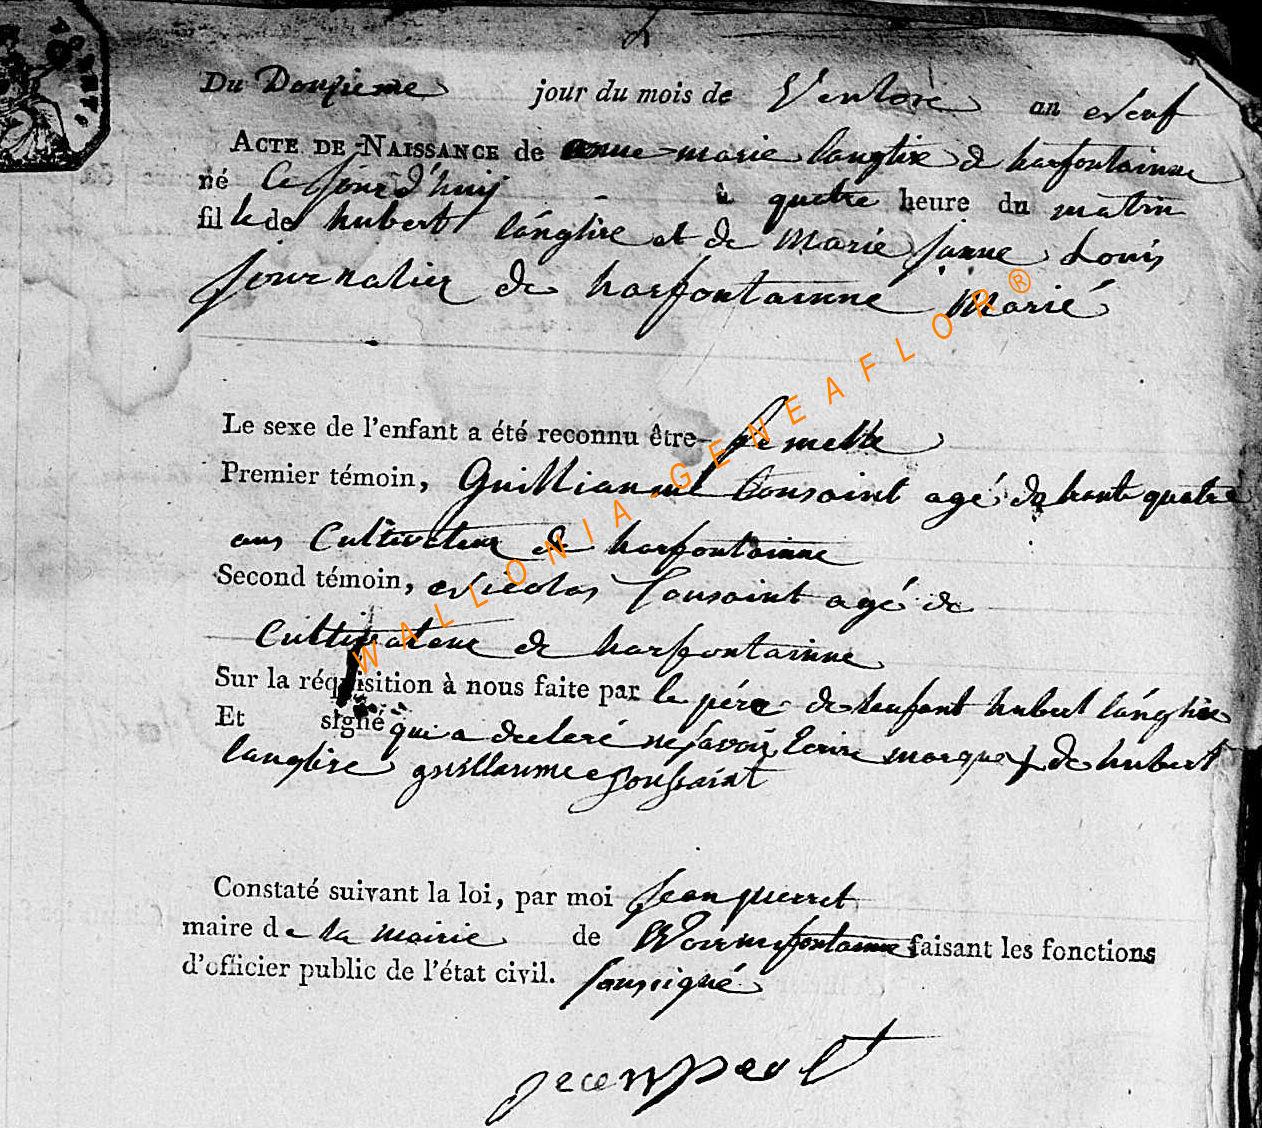 Du Douzieme jour du mois de Ventose an neuf
ACTE DE NAISSANCE de anne marie langlire de harfontainne
né Ce jourd'huy à quatre heure du matin
fil le de hubert langlire et de Marie janne Louis
journalier de harfontainne Marié
Le sexe de l'enfant a été reconnu être femelle
Premier témoin, Guilliaume tousaint agé de trente quatre
ans Cultivateur de harfontainne
Second témoin, Nicolas Tousaint agé de
Cultivateur de harfontainne
Sur la réquisition à nous faite par le pére de lenfant hubert langlire
Et signé qui a declaré ne savoir Ecrire marque + de hubert
langlire guillaume toussaint
Constaté suivant la loi, par moi jean pierret
maire de la mairie de faisant les fonctions
d'officier public de l'état civil. soussigné
WALLONIA-GENEAFLOR®